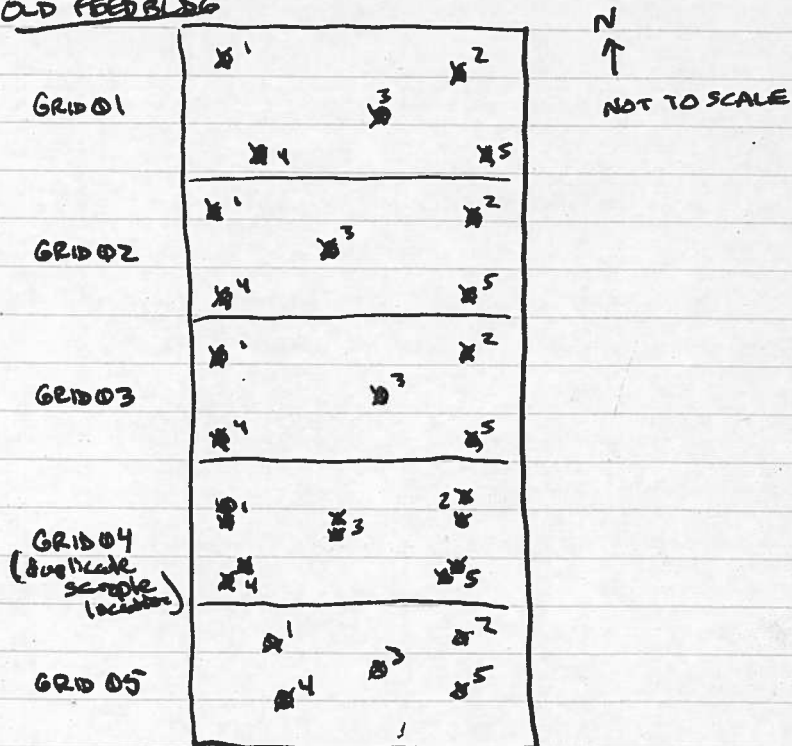 OLD FEED BLDG
N
NOT TO SCALE
GRID 01
1
2
3
4
5
GRID 02
1
2
3
4
5
GRID 03
1
2
3
4
5
GRID 04
(duplicate
sample
location)
1
2
3
4
5
GRID 05
1
2
3
4
5